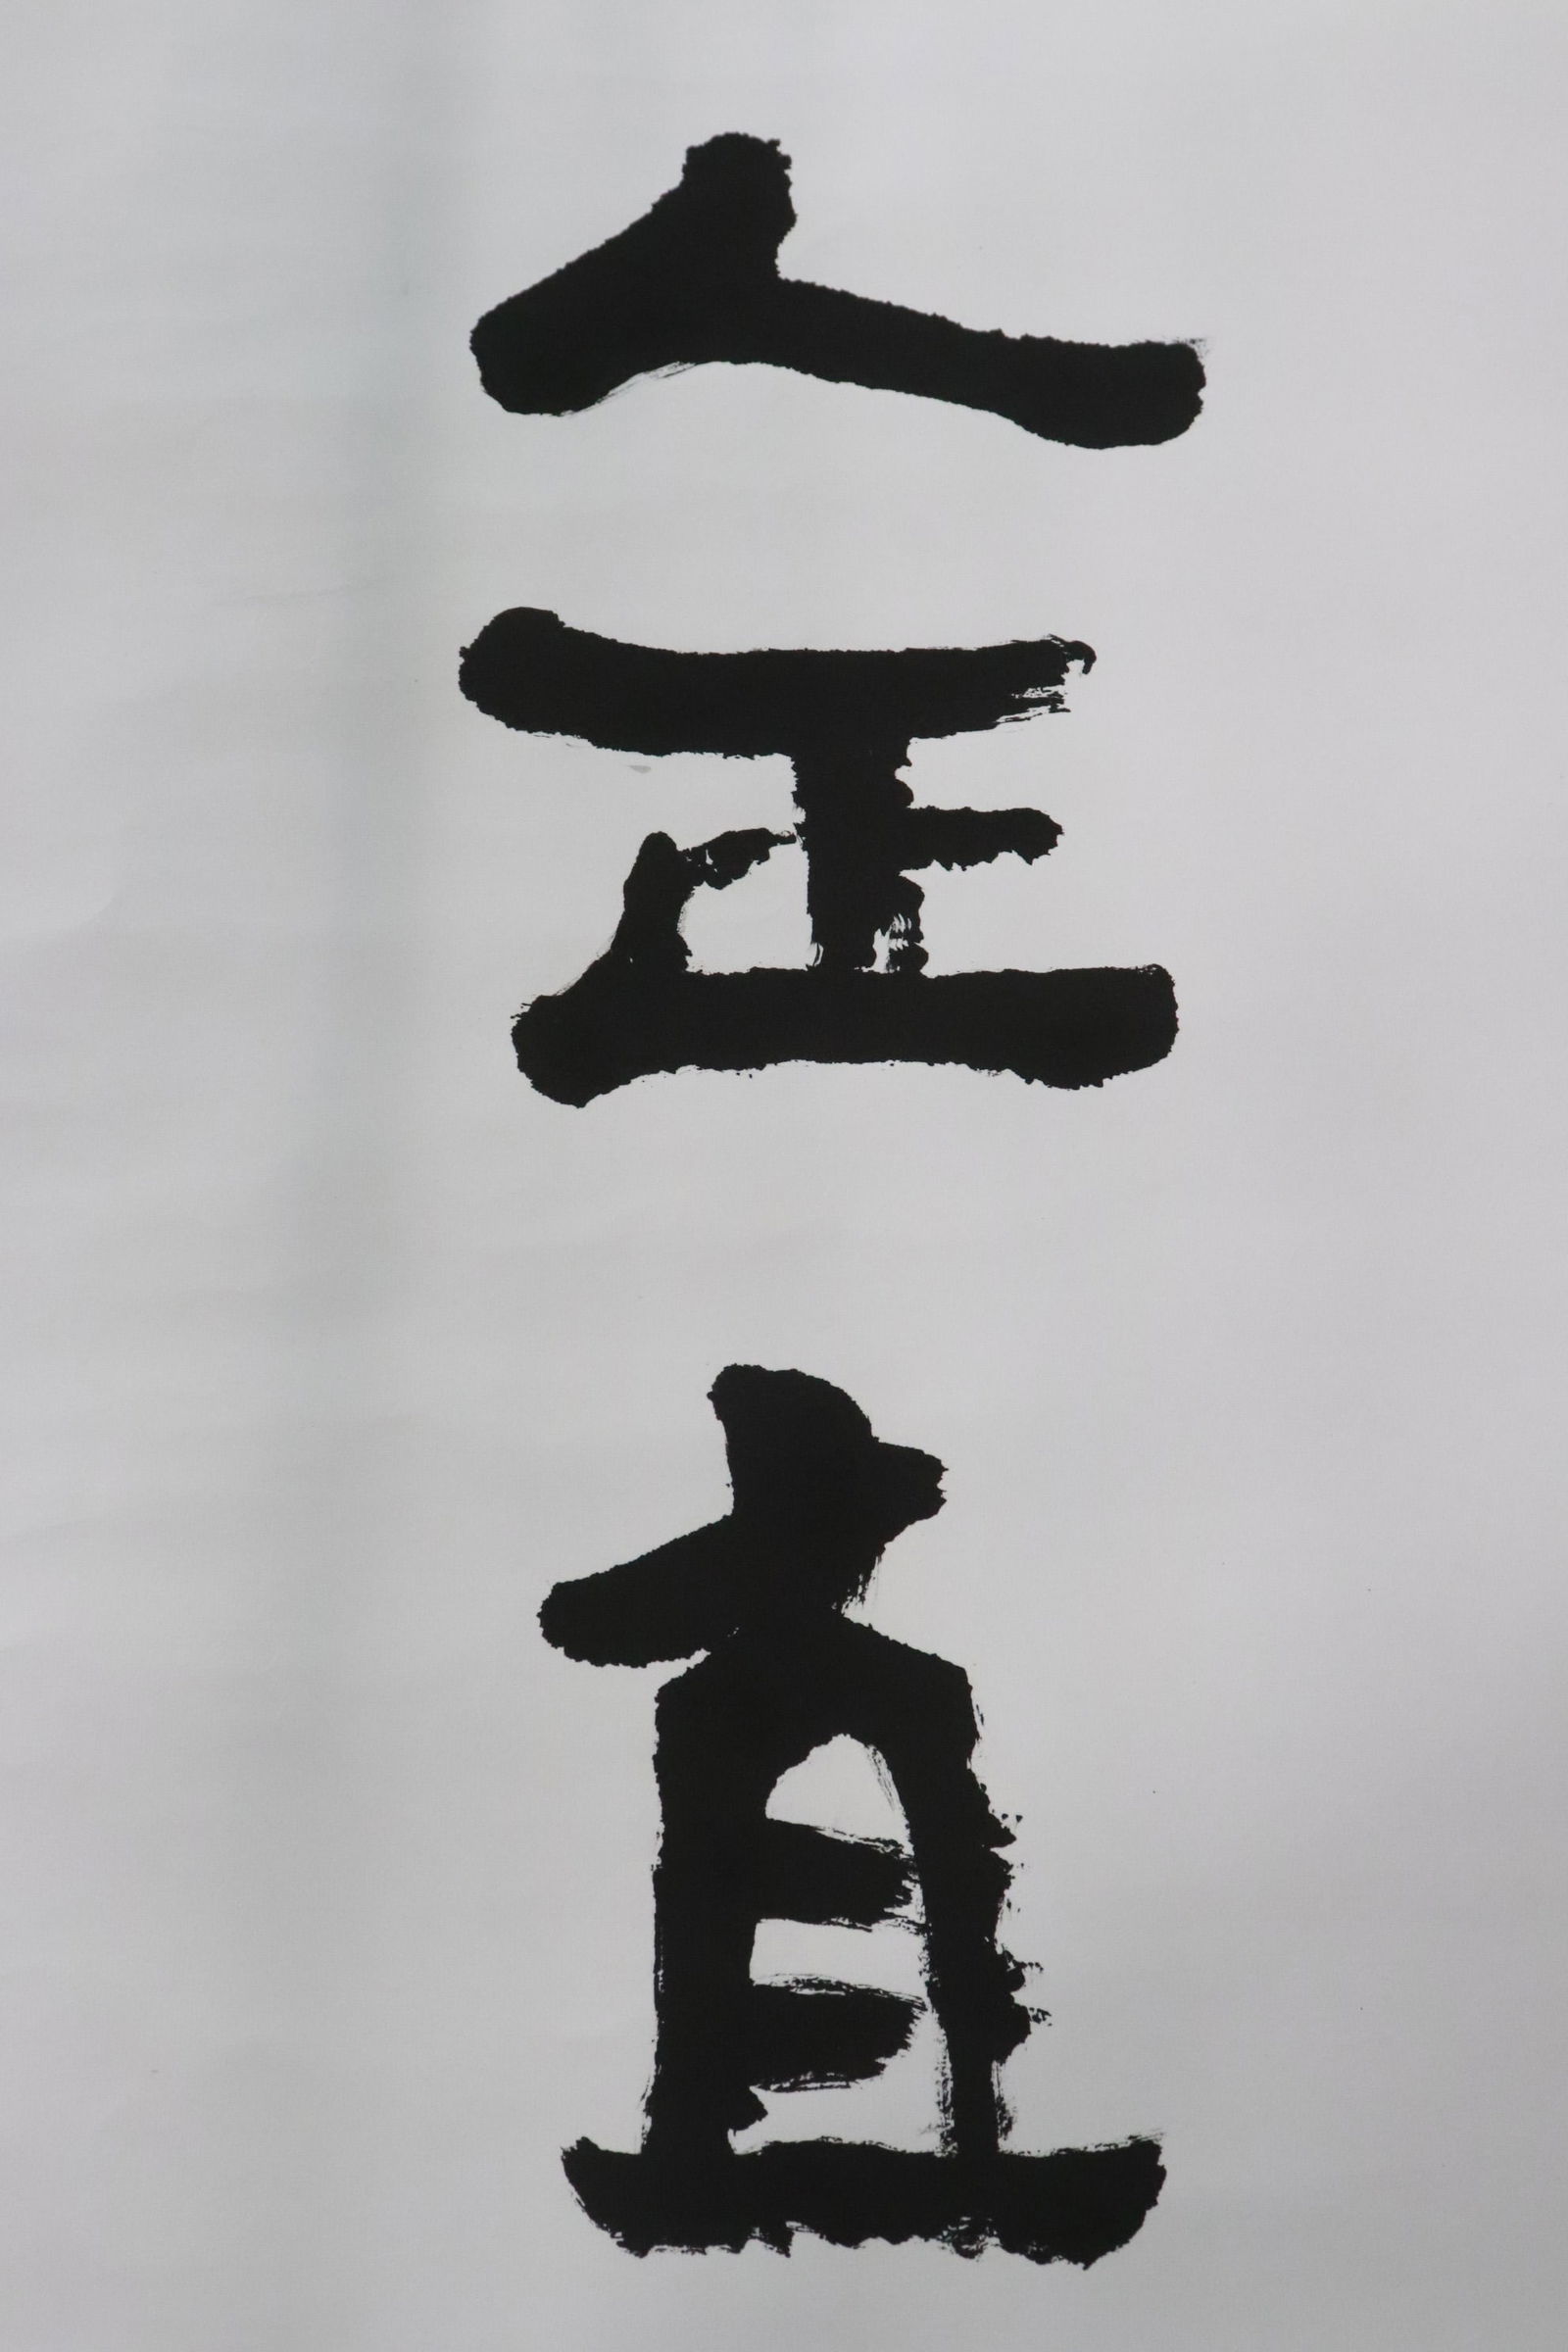 人正直